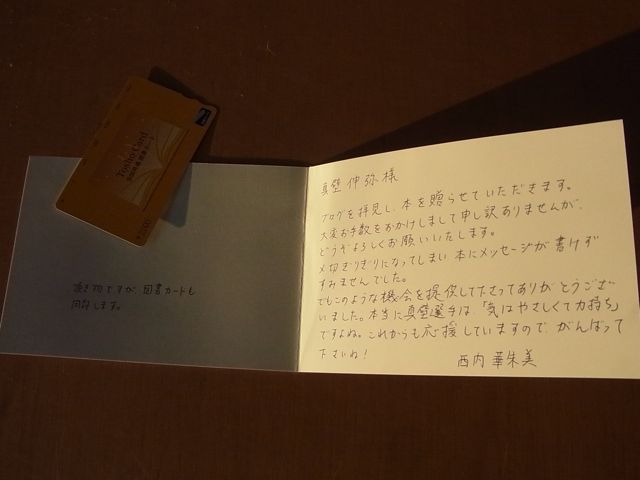 Tosho Card
全国共通図書カード
頂き物ですが、図書カードも
同封します。
真壁 伸弥 様
ブログを拝見し、本を贈らせていただきます。
大変お手数をおかけしまして申し訳ありませんが、
どうぞよろしくお願いいたします。
〆切ぎりぎりになってしまい 本にメッセージが書けず
すみませんでした。
でもこのような機会を提供して下さってありがとうござ
いました。本当に真壁選手は、「気はやさしくて力持ち」
ですよね。これからも応援していますので、がんばって
下さいね！
西内 華朱美